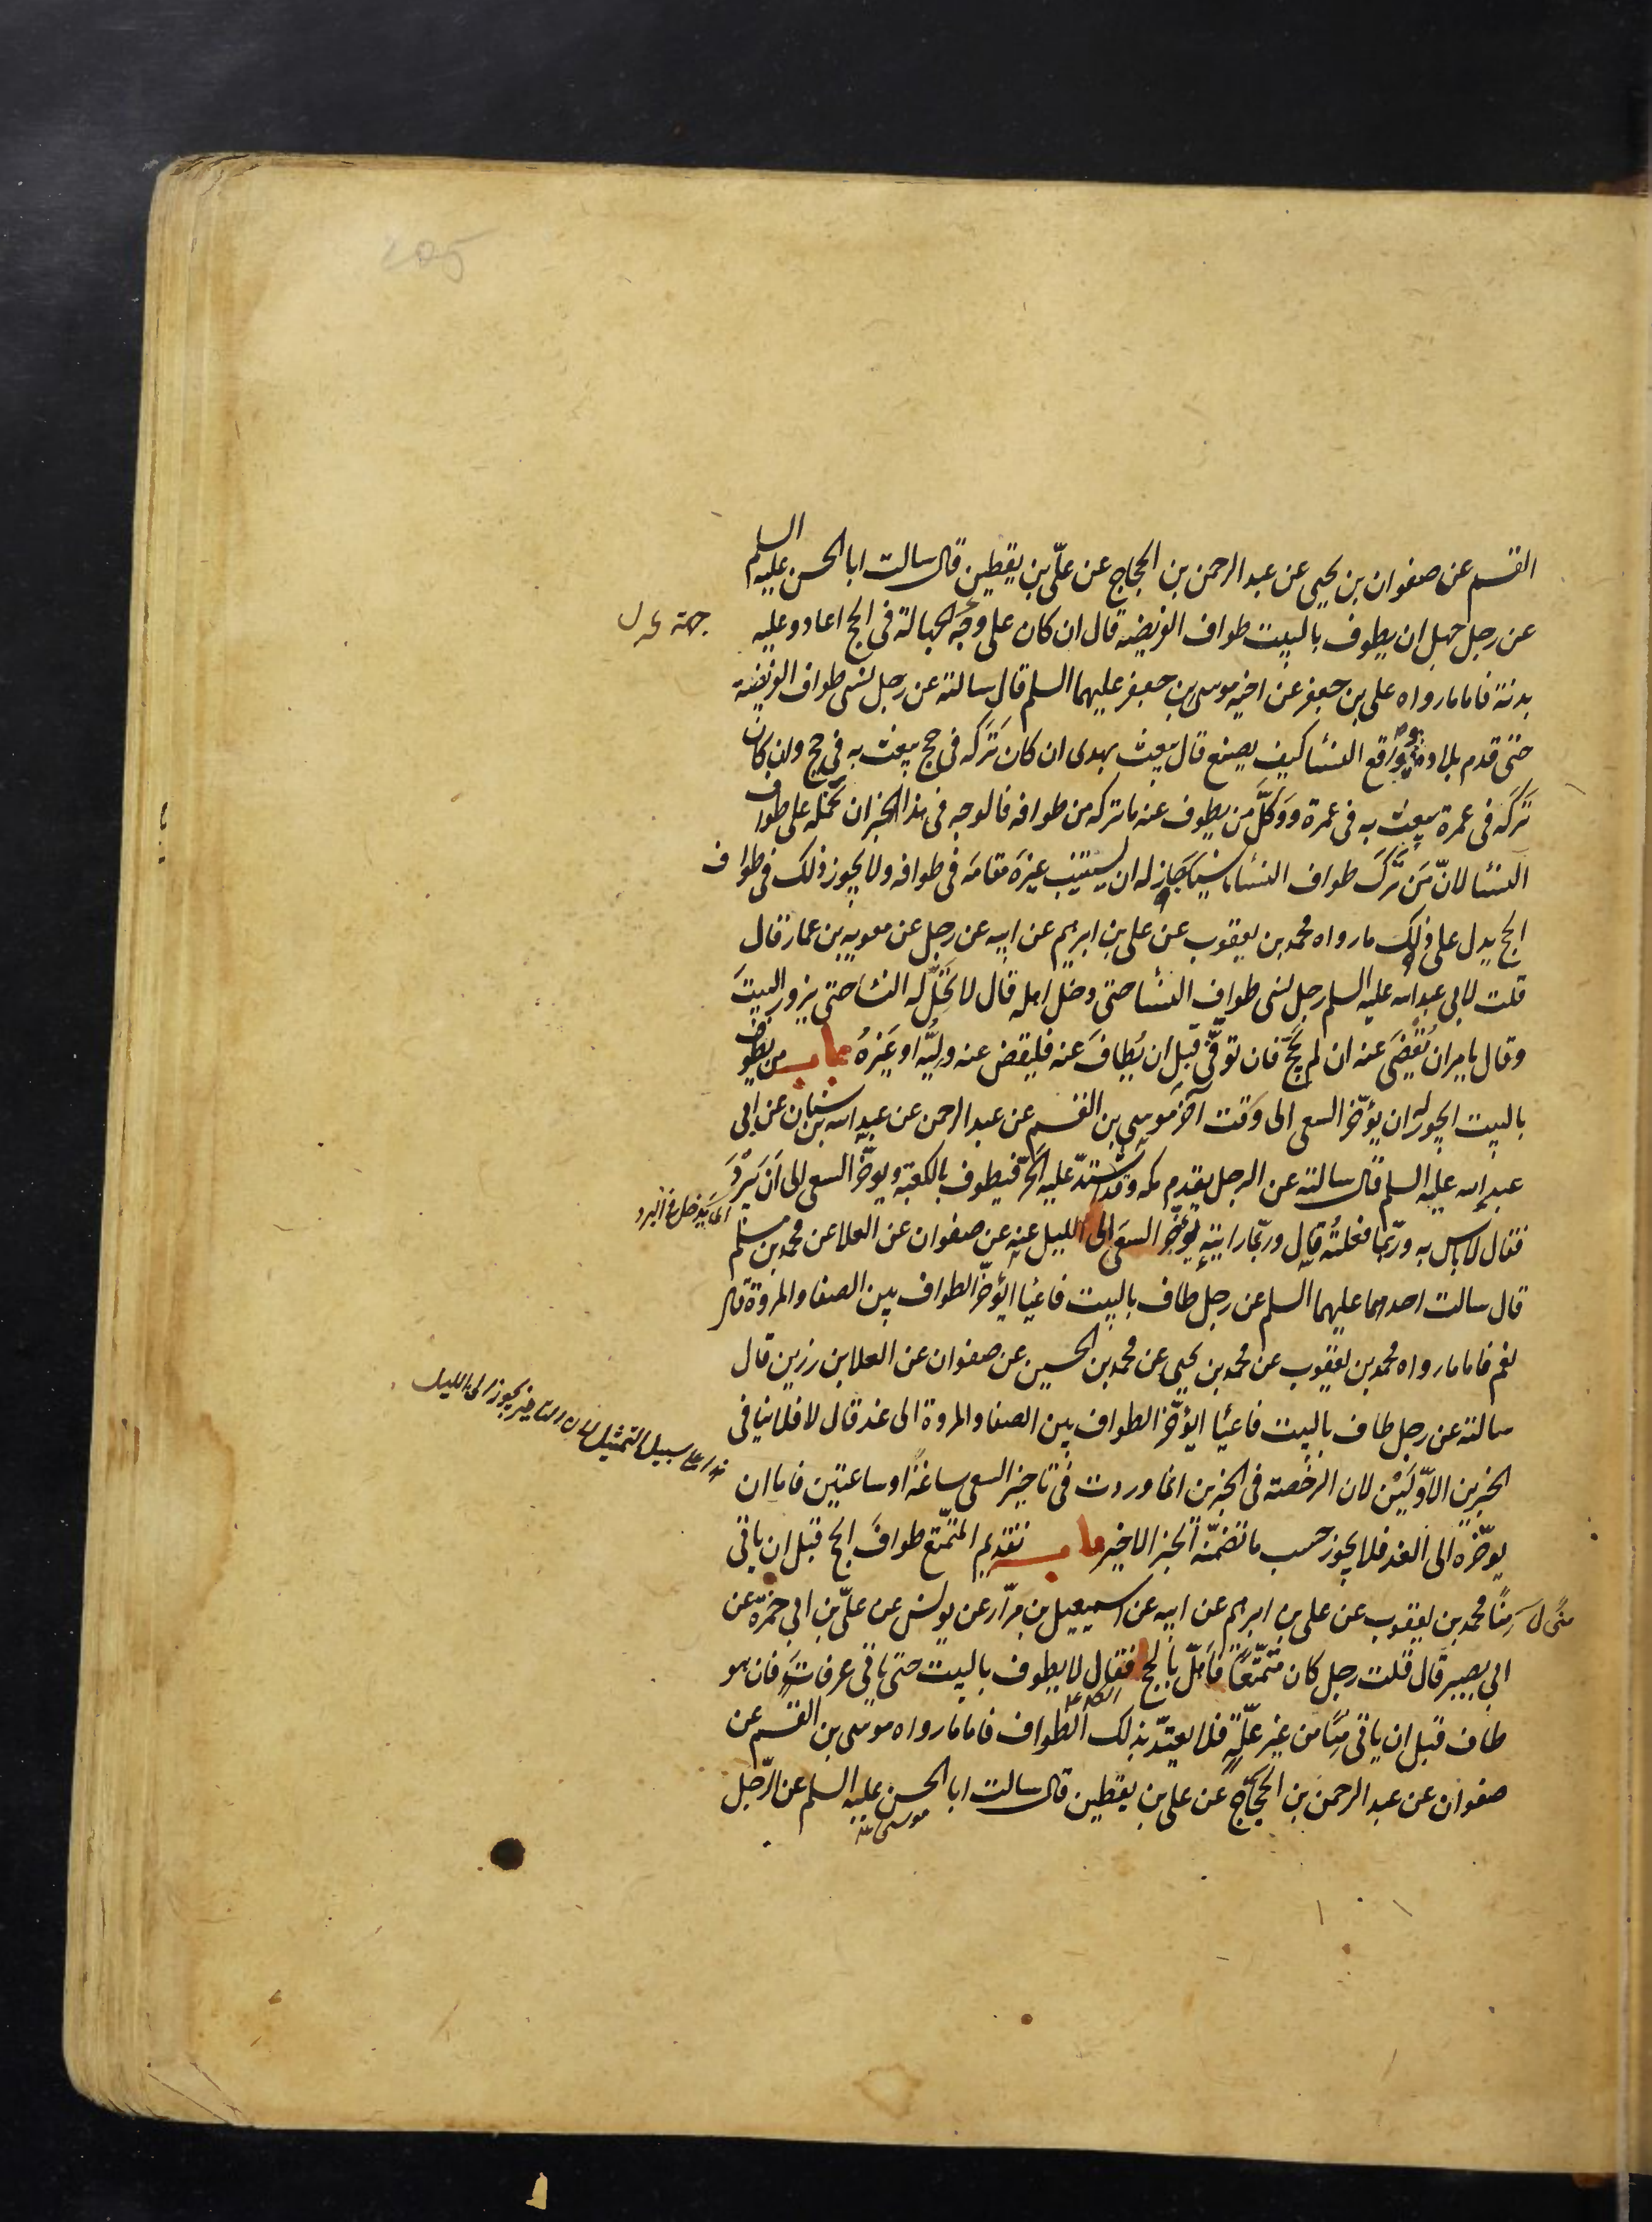 القسم عن صفوان بن يحيى عن عبد الرحمن بن الحجاج عن علىّ بن يقطين قال سالت ابا الحسن عليه السلم
عن رجل جهل ان يطوف بالبيت طواف الفريضه قال ان كان على وجه الجهالة فى الحج اعاد وعليه
جهة
بدنة فاما مارواه على بن جعفر عن اخيه موسى بن جعفر عليهما السلم قال سالته عن رجل نسى طواف الفريضة
حتى قدم بلاده وواقع النسٓا كيف يصنع قال يبعث بهدى ان كان تَرَكه فى حج يبعث به فى حج وان كان
تَرَكه فى عمرة يبعث به فى عمرة ووَكَلَّ من يطوف عنه ماتركه من طوافه فالوجه فى هذا الخبر ان نحمله على طواف
النسٓا لانّ مَن تَرَكَ طواف النسٓا ناسيًا جَاز له ان يستنيب غيرَه مقامَه فى طوافه ولا يجوز ذلك فى طواف
الحج يدل على ذلك مارواه محمد بن يعقوب عن على بن ابرهيم عن ابيه عن رجل عن معويه بن عمار قال
قلت لابى عبد الله عليه السلم رجل نسى طواف النسٓا حتى دخل اهله قال لا تَحِلّ له النسا حتى يزور البيتَ
وقال يامر ان يُقضَى عنه ان لم يَحُجّ فان توفّى قبل ان يُطافَ عنه فليقض عنه وليُّه او غيرُهُ باب من يطوف
بالبيت ايجوز له ان يؤخّر السعى الى وقت آخر موسى بن القسم عن عبد الرحمن عن عبد الله بن سنان عن ابى
عبد الله عليه السلم قال سالته عن الرجل يقدم مكه وقد اشتدّ عليه الحَرّ فيطوف بالكعبة ويوخّر السعى الى ان يَبْرُدَ
اى يَدخل فى البرد
فقال لا باس به وربّما فعلتُه قال وربّما رايته يُؤخّر السعى الى الليل عنه عن صفوان عن العلا عن محمد بن مسلم
قال سالت احدهما عليهما السلم عن رجل طاف بالبيت فاعيا ايؤخّر الطواف بين الصفا والمروة قال
نعم فاما مارواه محمد بن يعقوب عن محمد بن يحيى عن محمد بن الحسين عن صفوان عن العلا بن رزين قال
سالته عن رجل طاف بالبيت فاعيٓا ايؤخّر الطواف بين الصفا والمروة الى غد قال لا فلا ينافى
الخبرين الاوّليَن لان الرخصة فى الخبرين انما وردت فى تاخير السعى ساعةً او ساعتين فاما ان
هذا على سبيل التمثيل لان التاخير يجوز الى الليل
يوخّره الى الغد فلا يجوز حسب ماتضمّنه الخبر الاخير باب تقديم المتمتّع طوافَ الحج قبل ان ياتى
مِنًا محمد بن يعقوب عن على بن ابرهيم عن ابيه عن اسمعيل بن مرّار عن يونس عن علىّ بن ابى حمزة عن
منى ل
ابى بصير قال قلت رجل كان متمتّعًا فاهلّ بالحج فقال لا يطوف بالبيت حتى ياتى عرفات فان هو
طاف قبل ان ياتى مِنًا من غير علّة فلا يعتدّ بذلك الطواف فاما مارواه موسى بن القسم عن
صفوان عن عبد الرحمن بن الحجّاج عن على بن يقطين قال سالت ابا الحسن عليه السلم عن الرّجل
موسى